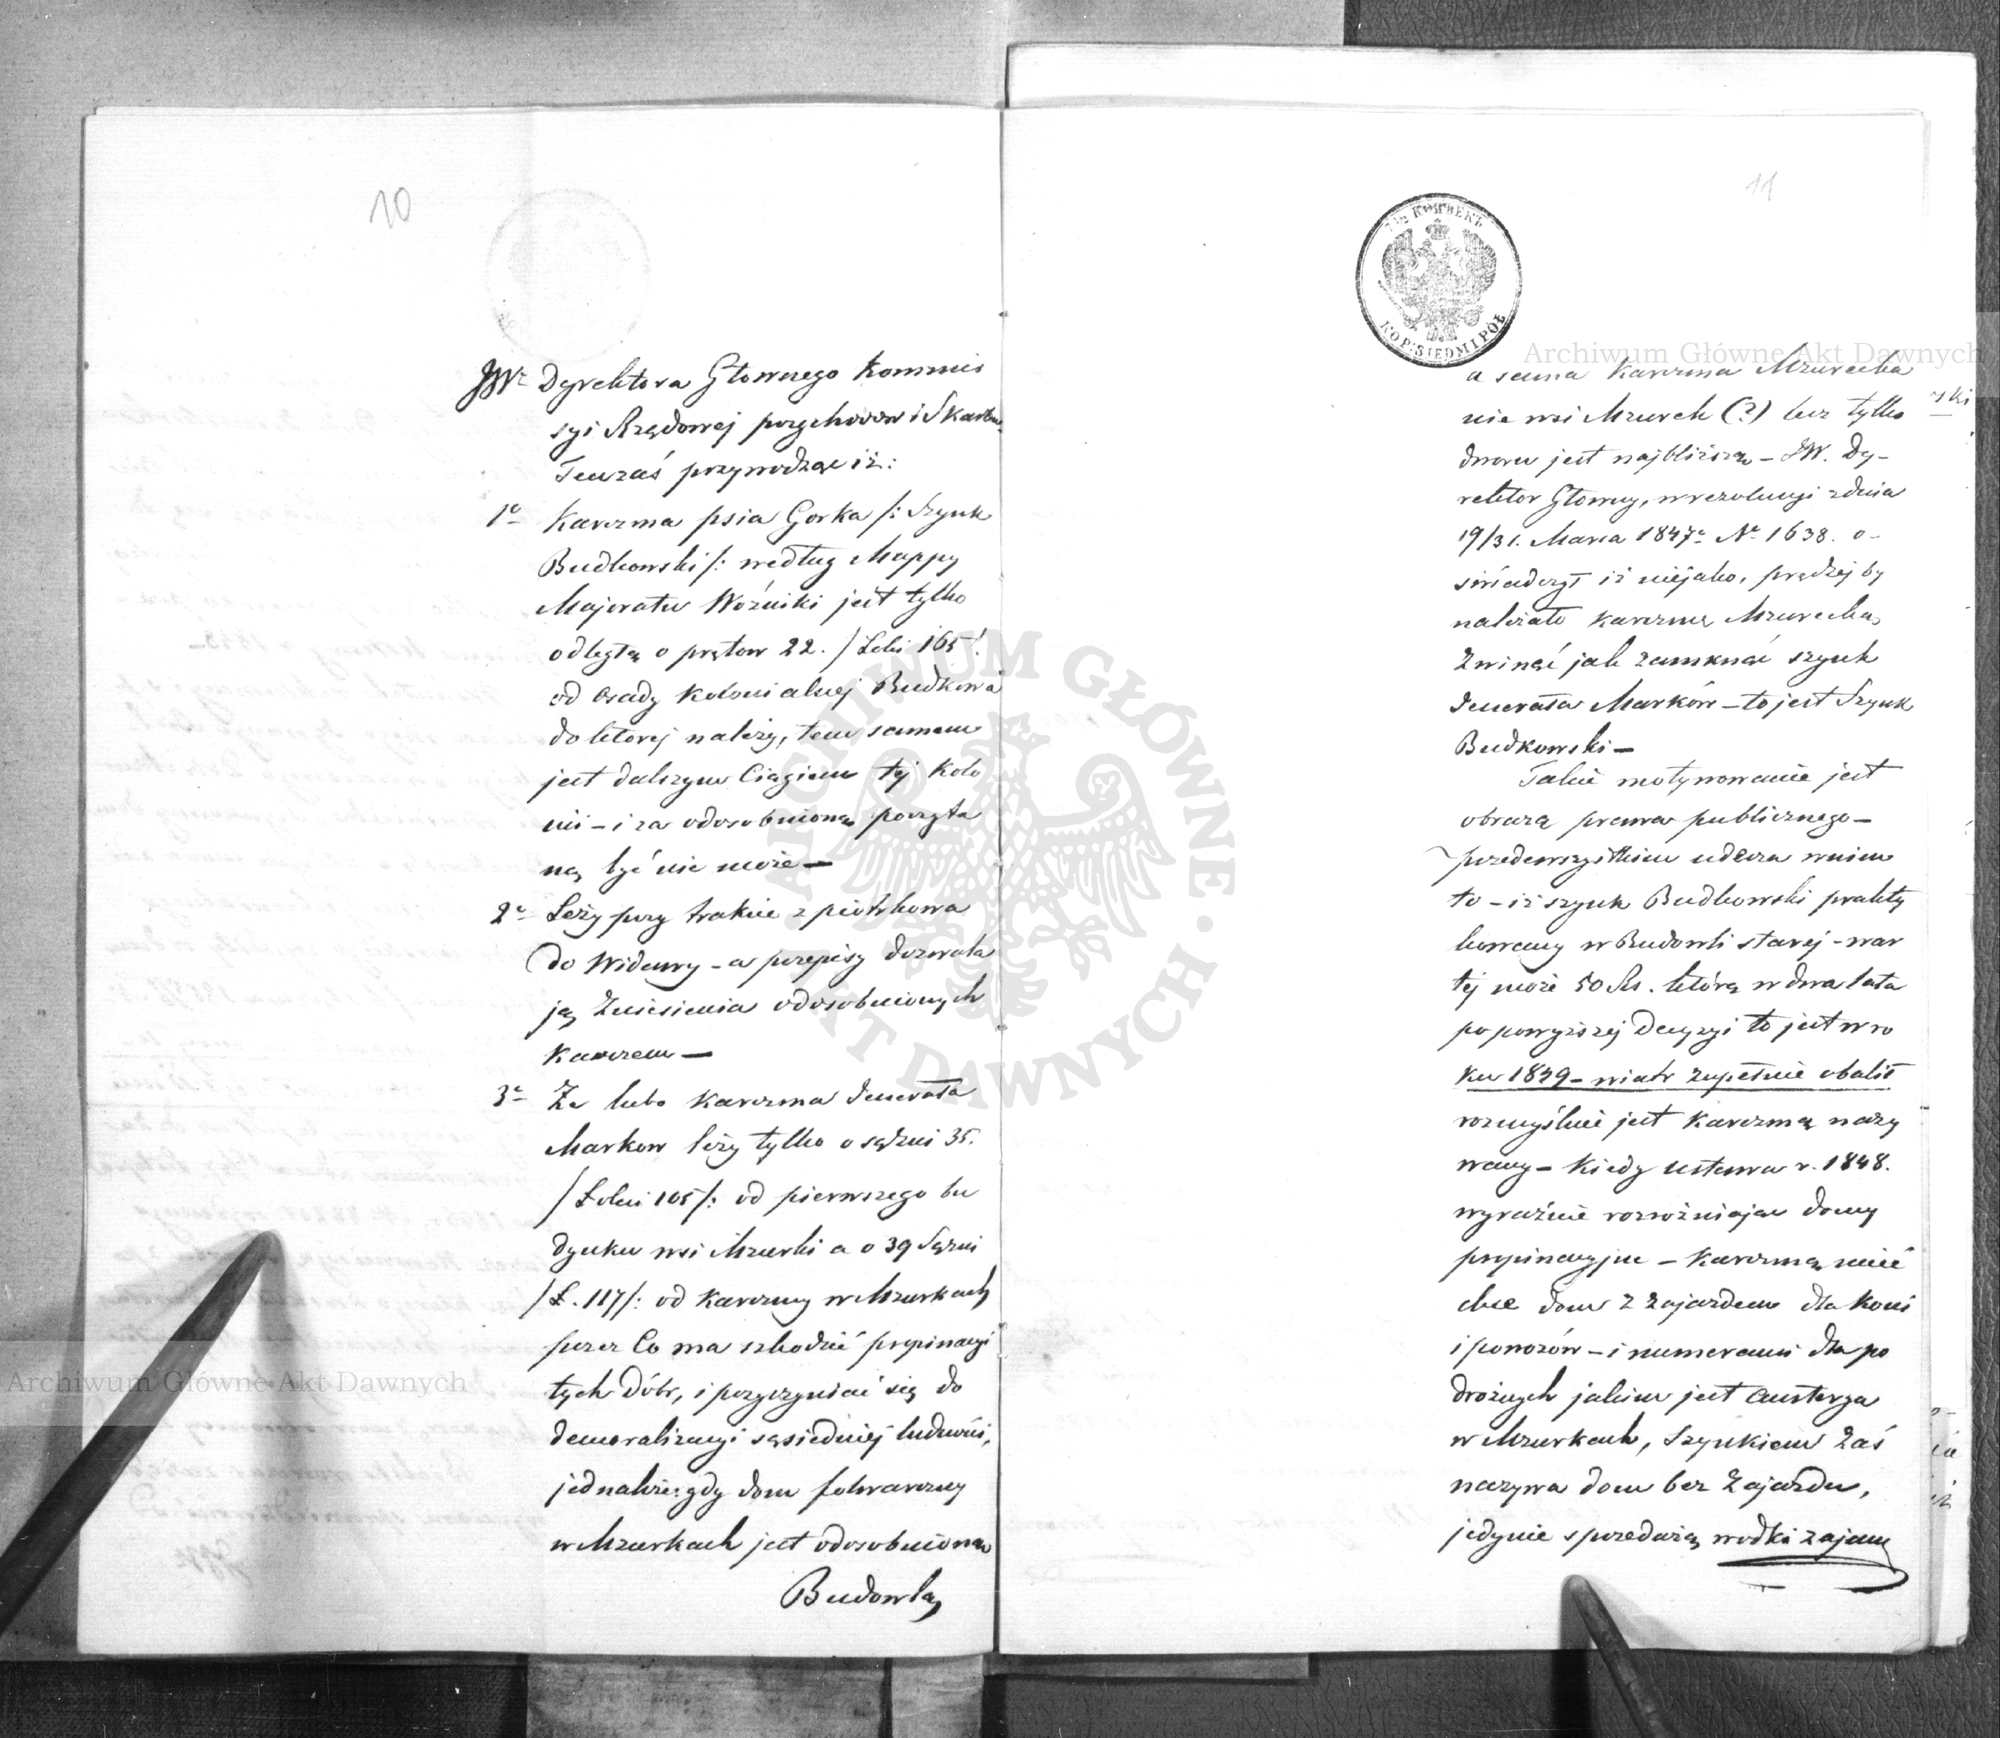 10
JWº Dyrektora Głownego Kommis
syi Rządowej przychodow i Skarbu.
Tenzaś przywodząc iż:
1º Karczma psia Gorka /: Szynk
Budkowski /: według Mappy
Majoratu Woźniki jest tylko
odległą o prętow 22. / Łokci 165 /.
od Osady Kolonialnej Budkowa
do ktorej należy, tem samem
jest dalszym Ciągiem tej Kolo
nii – i za odosobnioną poczyta
ną być nie może –
2º Leży przy trakcie z piotrkowa
do Widawy – a przepisy dozwala
ją zniesienia odosobnionych
Karczem –
3º Że lubo Karczma Jenerała
Markow leży tylko o sążni 35.
/ Łokci 105 /: od pierwszego bu
dynku wsi Mzurki a o 39 Sążni
/ Ł. 117 /: od Karczmy w Mzurkach
przez Co ma szkodzić propinacyi
tych Dóbr, i przyczyniać się do
demoralizacyi sąsiedniej ludności,
jednakże: gdy dom folwarczny
w Mzurkach jest odosobnioną
Budowlą
11
7½ КОПѢЕКЪ
KOP: SIEDMI PÓŁ
a sama Karczma Mzurecka
nie wsi Mzurek (?) lecz tylko
dworu jest najbliższą – JW. Dy-
rektor Głowny, w rezolucyi z dnia
19/31. Marca 1847º Nº 1638. o-
świadczył iż niejako, prędzej by
należało Karczmę Mzurecką,
Zwinąć jak zamknąć szynk
Jenerała Marków – to jest Szynk
Budkowski –
Takie motywowanie jest
obrazą prawa publicznego –
przedewszystkiem uderza w niem
to – iż szynk Budkowski prakty
kowany w Budowli starej – war
tej może 50 Rs. którą w dwa lata
po powyższej Decyzyi to jest w ro
ku 1849 – wiatr zupełnie obalił
rozmyślnie jest Karczmą nazy
wany – Kiedy ustawa r. 1848.
wyraźnie rozróżniając domy
propinacyjne – Karczmą mieć
chce dom z zajazdem dla Koni
i powozów – i numerami dla po
dróżnych jakim jest Austerya
w Mzurkach, Szynkiem Zaś
nazywa dom bez Zajazdu,
jedynie sprzedażą wodki zajęty
ski
Archiwum Główne Akt Dawnych
Archiwum Główne Akt Dawnych
ARCHIWUM GŁÓWNE AKT DAWNYCH